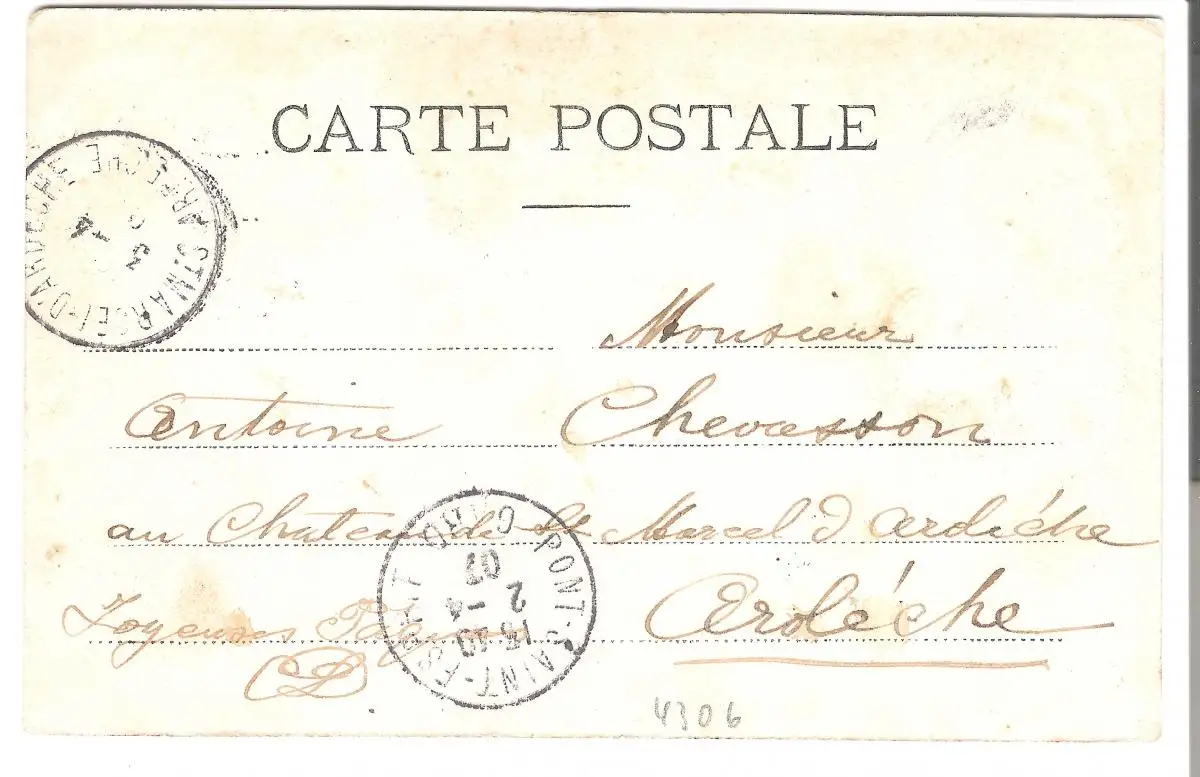 CARTE POSTALE
ST MARCEL-D'ARDECHE ARDECHE
3 -4
Monsieur
Antoine Chevasson
au Chateau de St Marcel d'Ardéche
Joyeuses Pâques Ardéche
CD
PONT-SAINT-ESPRIT GARD
15 40
2 -4
07
4306